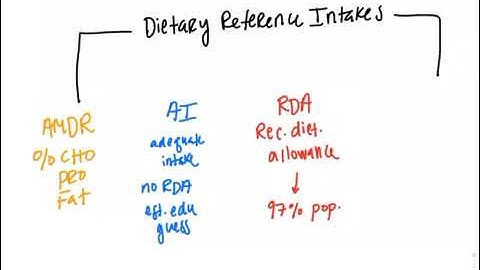 Dietary Reference Intakes
AMDR
% CHO
PRO
Fat
AI
adequate
intake
no RDA
est. edu
guess
RDA
Rec. diet.
allowance
97% pop.